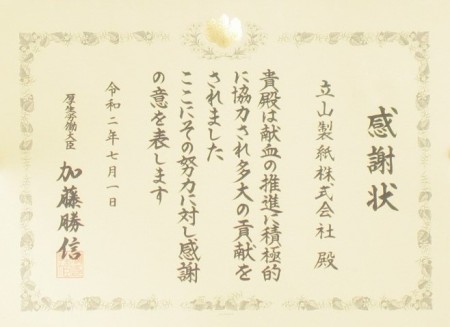 感謝状
立山製紙株式会社 殿
貴殿は献血の推進に積極的
に協力され多大の貢献を
されました
ここにその努力に対し感謝
の意を表します
令和二年七月一日
厚生労働大臣 加藤勝信